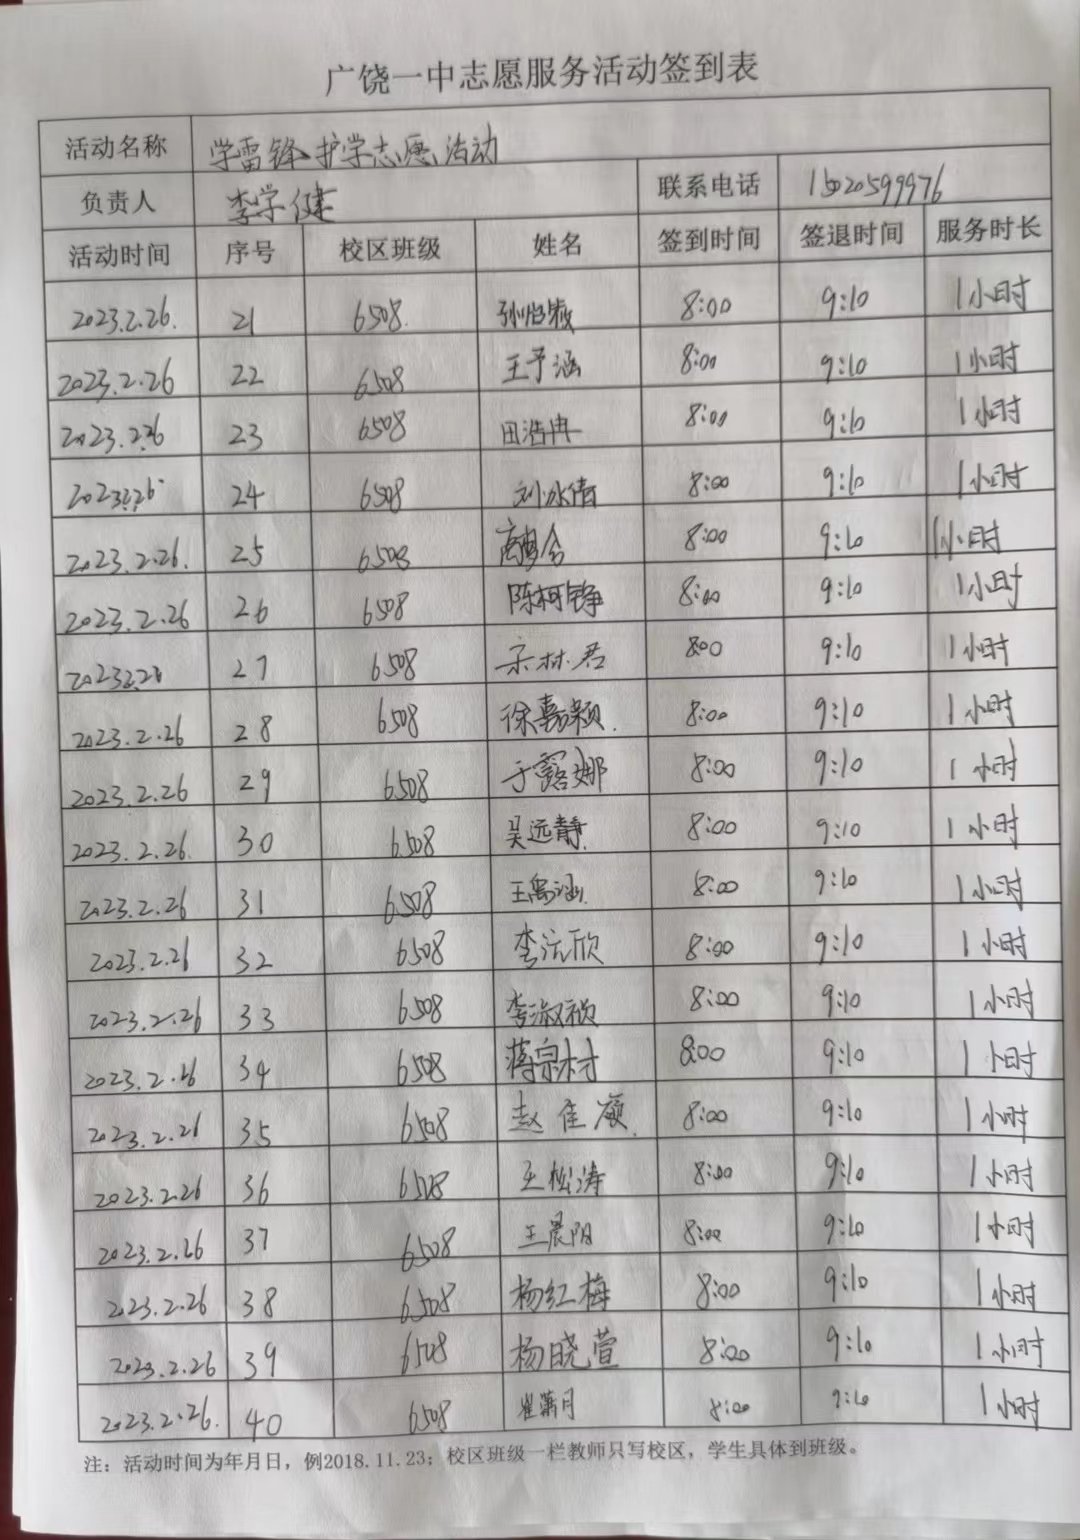 广饶一中志愿服务活动签到表
活动名称 学雷锋、护学志愿活动
负责人 李学健 联系电话 15020599976
活动时间 序号 校区班级 姓名 签到时间 签退时间 服务时长
2023.2.26. 21 6508. 8:00 9:10 1小时
2023.2.26 22 6508 王予涵 8:00 9:10 1小时
2023.2.26 23 6508 田浩冉 8:00 9:10 1小时
2023.2.26 24 6508 刘冰倩 8:00 9:10 1小时
2023.2.26. 25 6508 8:00 9:10 1小时
2023.2.26 26 6508 陈柯铮 8:00 9:10 1小时
2023.2.26 27 6508 宋林君 8:00 9:10 1小时
2023.2.26 28 6508 徐嘉颖. 8:00 9:10 1小时
2023.2.26 29 6508 于露娜 8:00 9:10 1小时
2023.2.26. 30 6508 吴远静. 8:00 9:10 1小时
2023.2.26 31 6508 王禹涵. 8:00 9:10 1小时
2023.2.26 32 6508 李沅欣 8:00 9:10 1小时
2023.2.26 33 6508 李淑祯 8:00 9:10 1小时
2023.2.26 34 6508 蒋宗村 8:00 9:10 1小时
2023.2.26 35 6508 赵佳硕. 8:00 9:10 1小时
2023.2.26 36 6508 王松涛 8:00 9:10 1小时
2023.2.26 37 6508 王晨阳 8:00 9:10 1小时
2023.2.26 38 6508 杨红梅 8:00 9:10 1小时
2023.2.26 39 6508 杨晓萱 8:00 9:10 1小时
2023.2.26. 40 6508 崔萧月 8:00 9:10 1小时
注：活动时间为年月日，例2018.11.23；校区班级一栏教师只写校区，学生具体到班级。